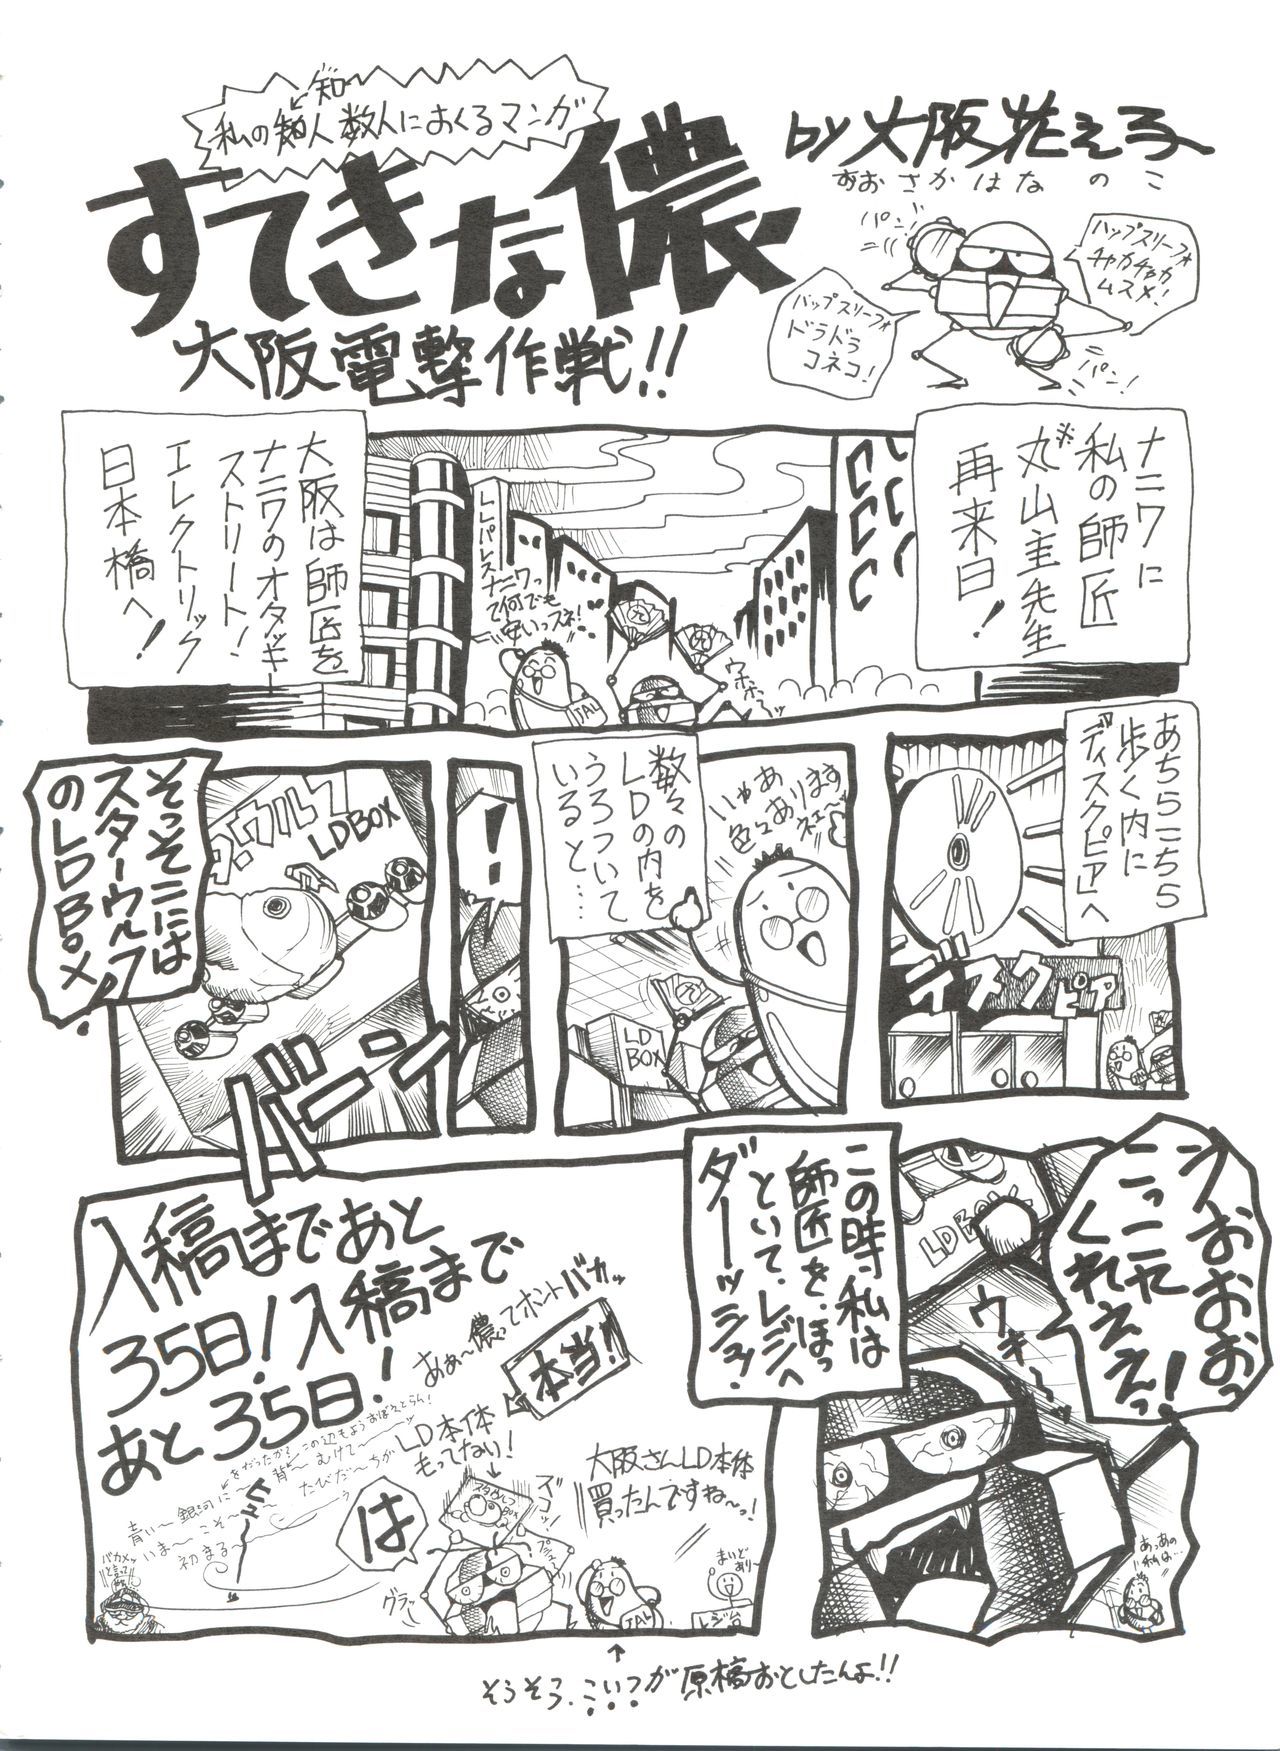 知
私の知人数人におくるマンガ
すてきな儂
大阪電撃作戦!!
by 大阪花え子
おおさかはなのこ
パン!
ハップスリーフォ
チャカチャカ
ムスメ!
バップスリーフォ
ドラドラ
コネコ!
パン!
ナニワに
私の師匠
※丸山主先生
再来日!
大阪は師匠を
ナニワのオタッキー
ストリート!
エレクトリック
日本橋へ!
レレパレス
ナニワっ
て何でも
安いっスネ!
九
九
ウホホーッ
JAL
あちらこちら
歩く内に
「ディスクピア」へ
ディスクピア
いゃあ
色々あります
ネェ〜
数々の
LDの内を
うろついて
いると…
LD
BOX
!!
そっそこには
スターウルフ
のLDBOX!
LDBOX
バーン
うおおおおっ
こっこれ
くれえええっ!
LDBOX
ウキーッ
あっあの
私は…
この時私は
師匠を、ほっ
といて、レジへ
ダーッシュ!
入稿まであと
35日!入稿まで
あと35日!
あぁ〜儂ってホントバカッ
本当!!
LD本体
もってない!
大阪さんLD本体
買ったんですね〜っ!
は
スタウルフ
BOX
グラッ
JAL
まいど
あり〜
レジ台
青い〜銀河に〜
をがったかな
この辺もようおぼえとらん!
背〜むけて〜ッ
いま〜こそ〜
たびだ〜ちが
初まる〜
バカメッ
↑
そうそう、こいつが原稿おとしたんよ!!